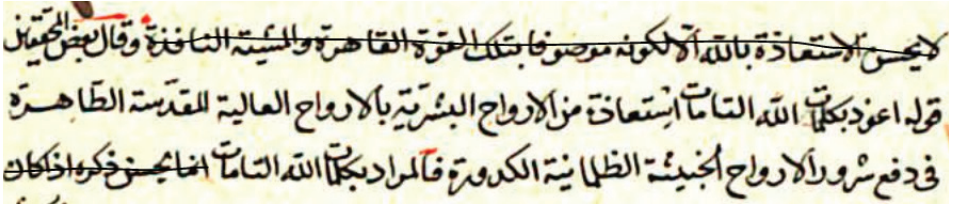 لا يحسن الاستعاذة بالله الا لكونه موصوفا بتلك القوة القاهرة والمشيئة النافذة وقال بعض المحققين
قوله اعوذ بكلمات الله التامات استعاذة من الارواح البشرية بالارواح العالية المقدسة الطاهرة
فى دفع شرور الارواح الخبيثة الظلمانية الكدورة فالمراد بكلمات الله التامات انما يحسن ذكره اذا كان